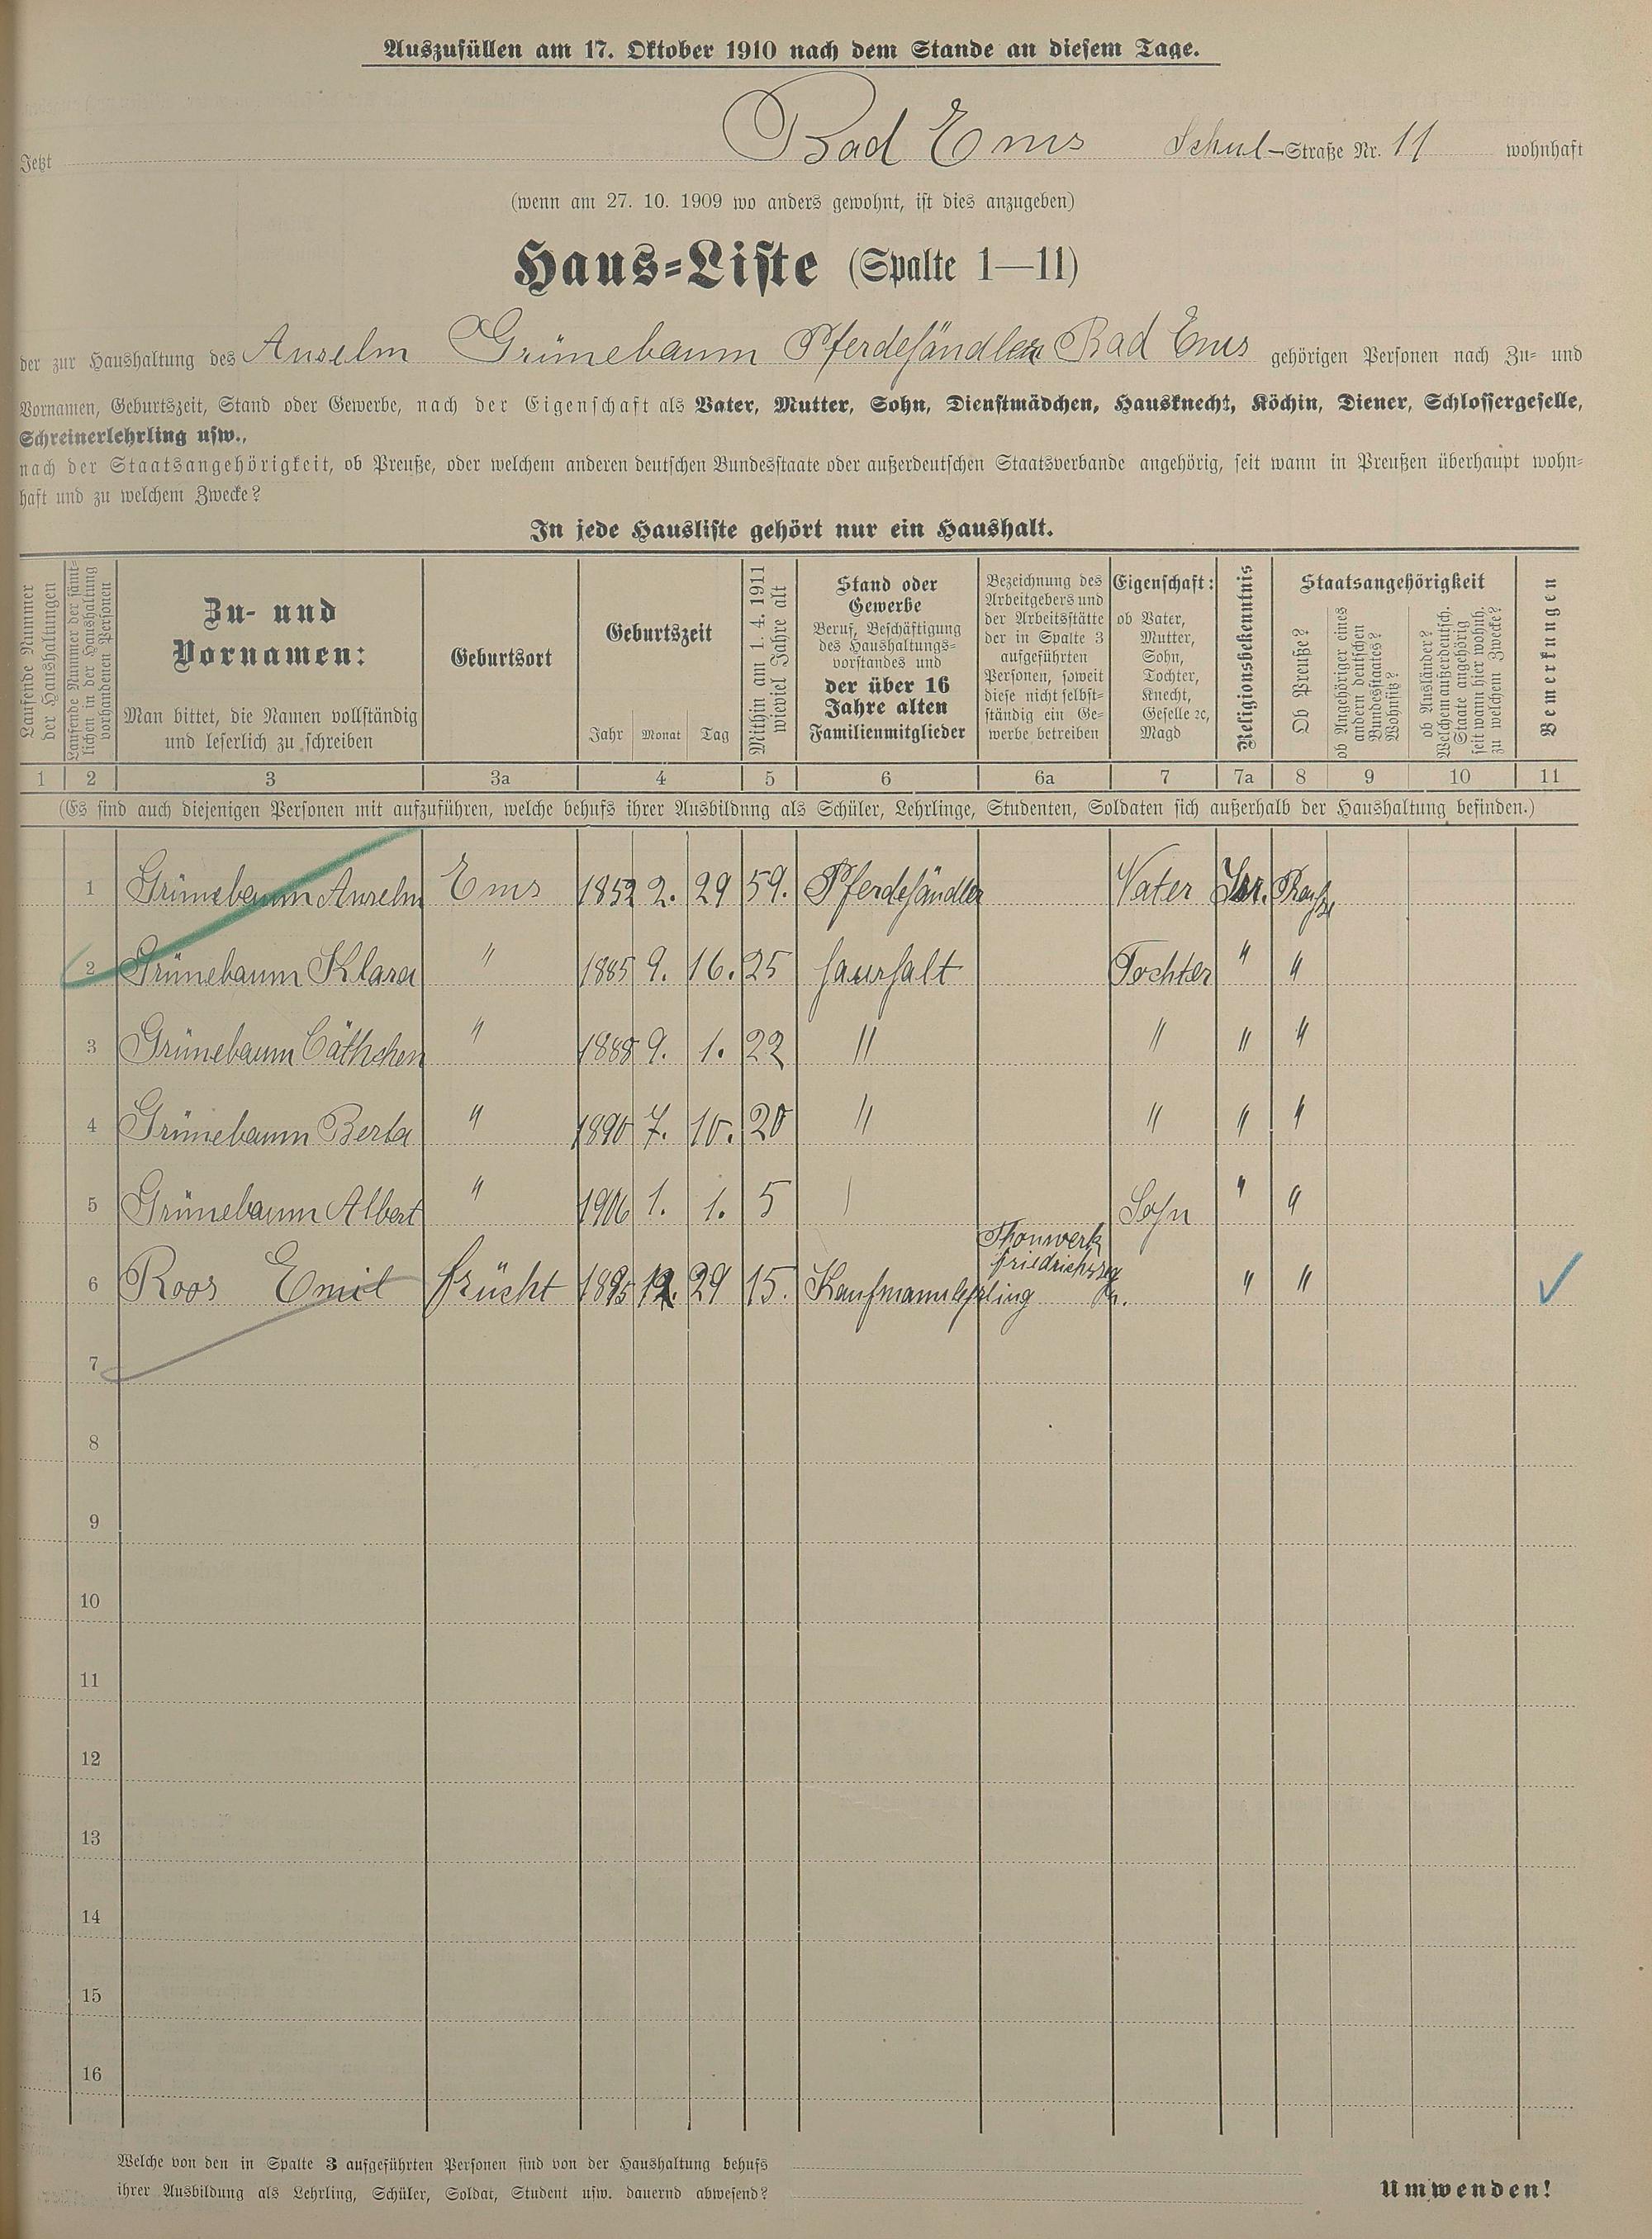 Auszufüllen am 17. Oktober 1910 nach dem Stande an diesem Tage.
Jetzt Bad Ems Schul-Straße Nr. 11 wohnhaft
(wenn am 27. 10. 1909 wo anders gewohnt, ist dies anzugeben)
Haus-Liste (Spalte 1—11)
der zur Haushaltung des Anselm Grünebaum Pferdehändler Bad Ems gehörigen Personen nach Zu- und
Vornamen, Geburtszeit, Stand oder Gewerbe, nach der Eigenschaft als Vater, Mutter, Sohn, Dienstmädchen, Hausknecht, Köchin, Diener, Schlossergeselle,
Schreinerlehrling usw.,
nach der Staatsangehörigkeit, ob Preuße, oder welchem anderen deutschen Bundesstaate oder außerdeutschen Staatsverbande angehörig, seit wann in Preußen überhaupt wohn-
haft und zu welchem Zwecke?
In jede Hausliste gehört nur ein Haushalt.
Laufende Nummer
der Haushaltungen
Laufende Nummer der sämt-
lichen in der Haushaltung
vorhandenen Personen
Zu- und
Vornamen:
Man bittet, die Namen vollständig
und leserlich zu schreiben
Geburtsort
Geburtszeit
Jahr Monat Tag
Mithin am 1. 4. 1911
wieviel Jahre alt
Stand oder
Gewerbe
Beruf, Beschäftigung
des Haushaltungs-
vorstandes und
der über 16
Jahre alten
Familienmitglieder
Bezeichnung des
Arbeitgebers und
der Arbeitsstätte
der in Spalte 3
aufgeführten
Personen, soweit
diese nicht selbst-
ständig ein Ge-
werbe betreiben
Eigenschaft:
ob Vater,
Mutter,
Sohn,
Tochter,
Knecht,
Geselle ꝛc,
Magd
Religionsbekenntnis
Staatsangehörigkeit
Ob Preuße?
ob Angehöriger eines
andern deutschen
Bundesstaates?
Wohnsitz?
ob Ausländer?
Welchem außerdeutsch.
Staate angehörig
seit wann hier wohnh.
zu welchem Zwecke?
Bemerkungen
1 2 3 3a 4 5 6 6a 7 7a 8 9 10 11
(Es sind auch diejenigen Personen mit aufzuführen, welche behufs ihrer Ausbildung als Schüler, Lehrlinge, Studenten, Soldaten sich außerhalb der Haushaltung befinden.)
1 Grünebaum Anselm Ems 1852 2. 29 59. Pferdehändler Vater Isr. Preuße
2 Grünebaum Klara " 1885 9. 16. 25 Haushalt Tochter " "
3 Grünebaum Cäthchen " 1888 9. 1. 22 " " " "
4 Grünebaum Berta " 1890 7. 10. 20 " " " "
5 Grünebaum Albert " 1906 1. 1. 5 Sohn " "
6 Roos Emil Frücht 1895 12. 29 15. Kaufmannlehrling Thonwerk " "
7
8
9
10
11
12
13
14
15
16
Welche von den in Spalte 3 aufgeführten Personen sind von der Haushaltung behufs
ihrer Ausbildung als Lehrling, Schüler, Soldat, Student usw. dauernd abwesend?
Umwenden!